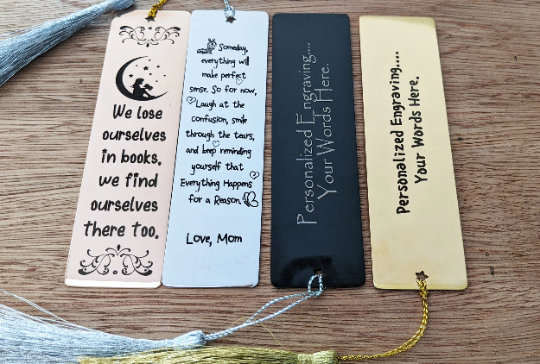 We lose
ourselves
in books,
we find
ourselves
there too.
Someday,
everything will
make perfect
sense. So for now,
Laugh at the
confusion, smile
through the tears,
and keep reminding
yourself that
Everything Happens
for a Reason.
Love, Mom
Personalized Engraving....
Your Words Here.
Personalized Engraving.....
Your Words Here.